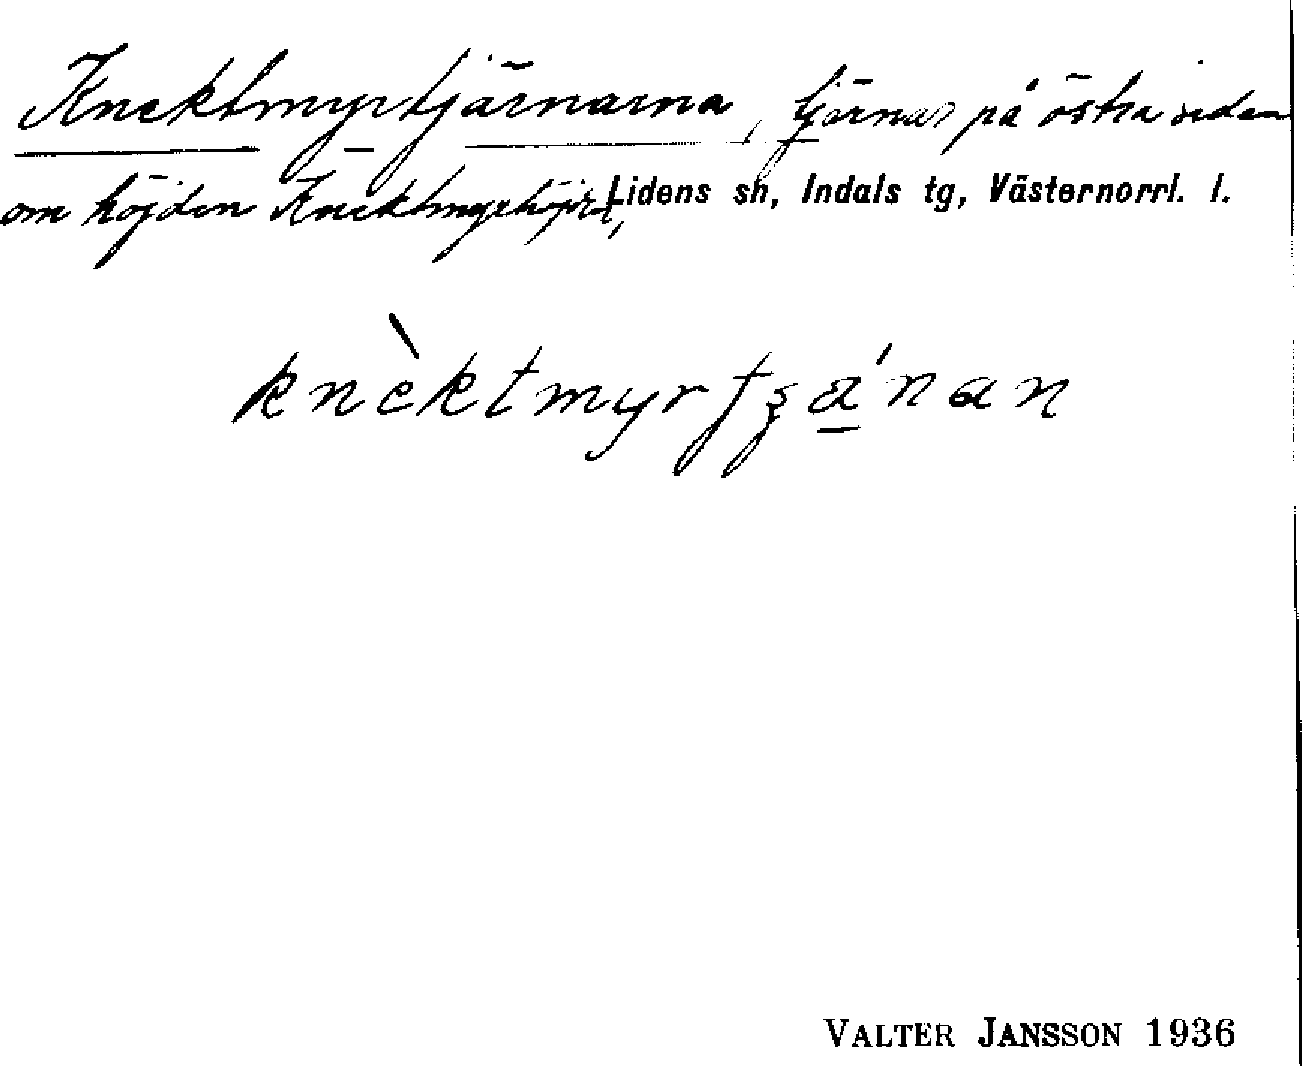 Knektmyrtjärnarna, tjärnar på östra sidan
om höjden Knektmyrhöjden, Lidens sn, Indals tg, Västernorrl. l.
knèktmyrtʂánan
VALTER JANSSON 1936